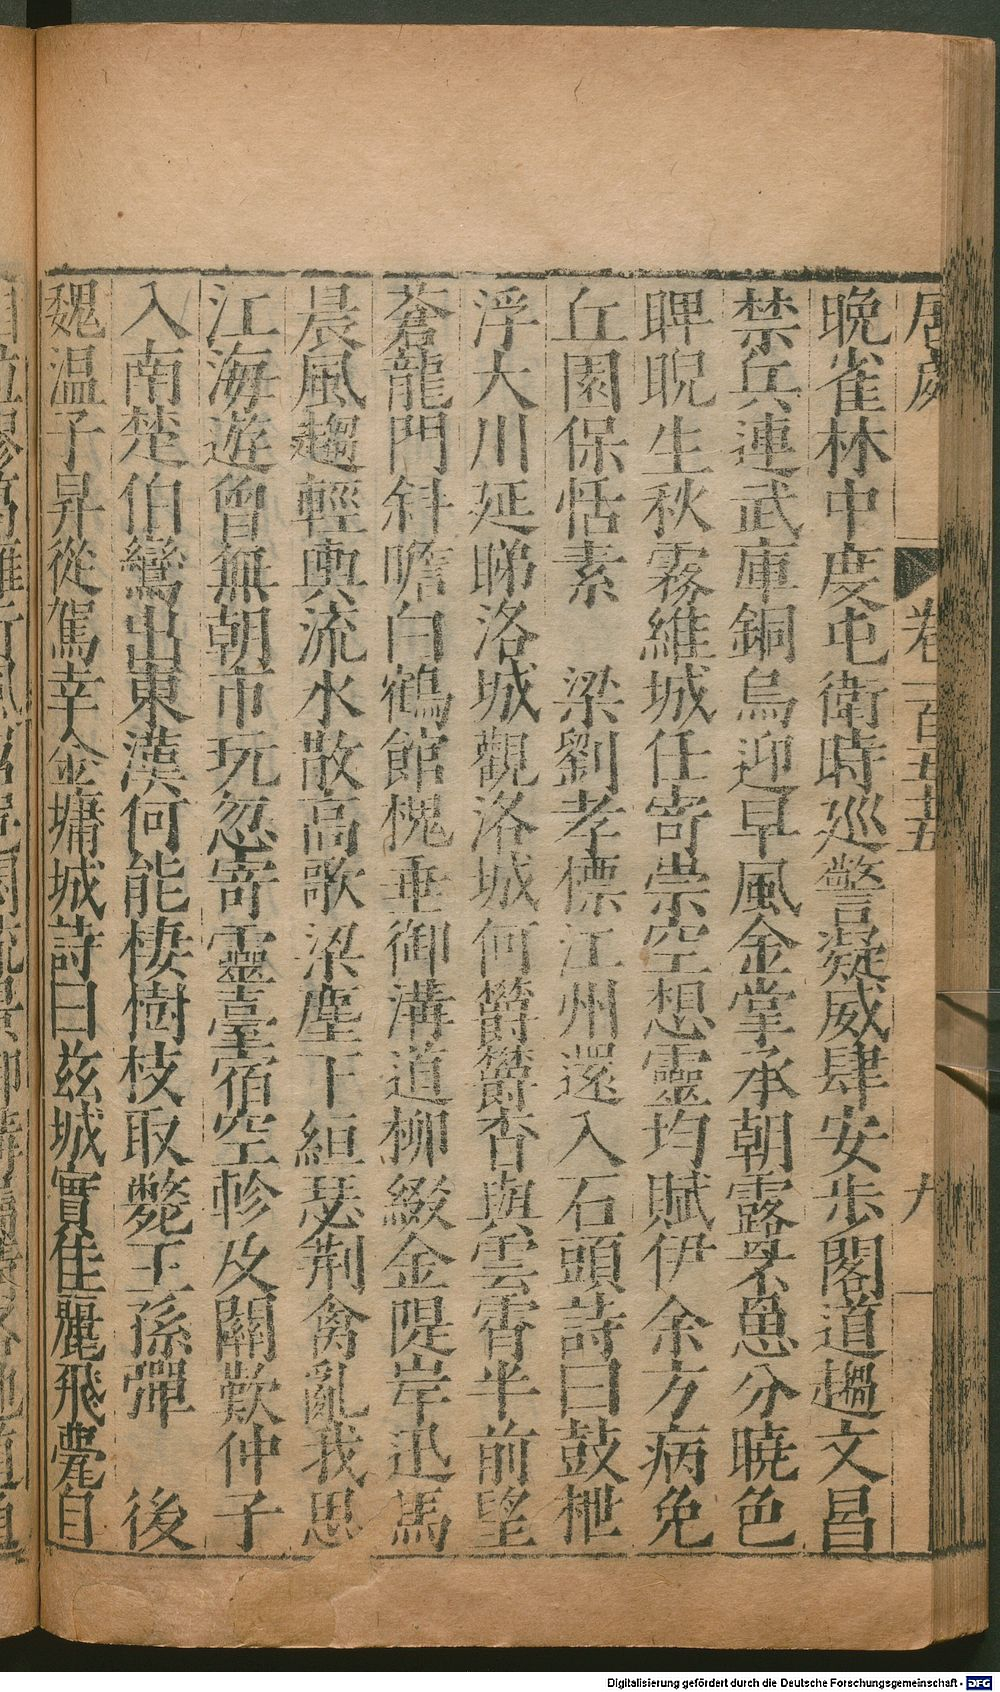 卷一百五十五
九
晚雀林中度屯衛時巡警凝威肆安步閣道趨文昌
禁兵連武庫銅烏迎早風金掌承朝露罘罳分曉色
睥睨生秋霧維城任寄崇空想靈均賦伊余方病免
丘園保恬素　梁劉孝標江州還入石頭詩曰鼓枻
浮大川延睇洛城觀洛城何欝欝杳與雲霄半前望
蒼龍門斜瞻白鶴館槐垂御溝道柳綴金隄岸迅馬
晨風趨輕輿流水散高歌梁塵下絙瑟荆禽亂我思
江海遊曾無朝市玩忽寄靈臺宿空軫及關歎仲子
入南楚伯鸞出東漢何能棲樹枝取斃王孫彈　後
魏温子昇從駕幸金墉城詩曰兹城實佳麗飛甍自
Digitalisierung gefördert durch die Deutsche Forschungsgemeinschaft - DFG